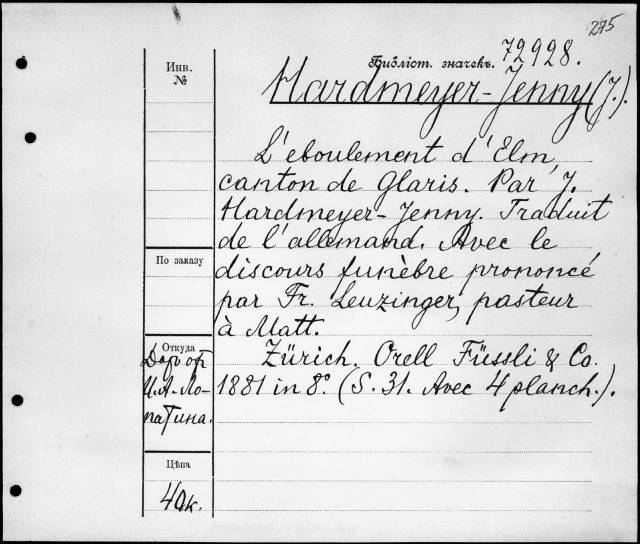 275
Библіот. значекъ. 72928.
Инв.
№
Hardmeyer-Jenny (J.).
L'eboulement d'Elm,
canton de Glaris. Par J.
Hardmeyer-Jenny. Traduit
de l'allemand. Avec le
По заказу
discours funèbre prononcé
par Fr. Leuzinger, pasteur
à Matt.
Откуда
Zürich. Orell Füssli & Co.
1881 in 8°. (S. 31. Avec 4 planch.).
Даръ от
И.А. Ло-
патина.
Цѣна
40к.